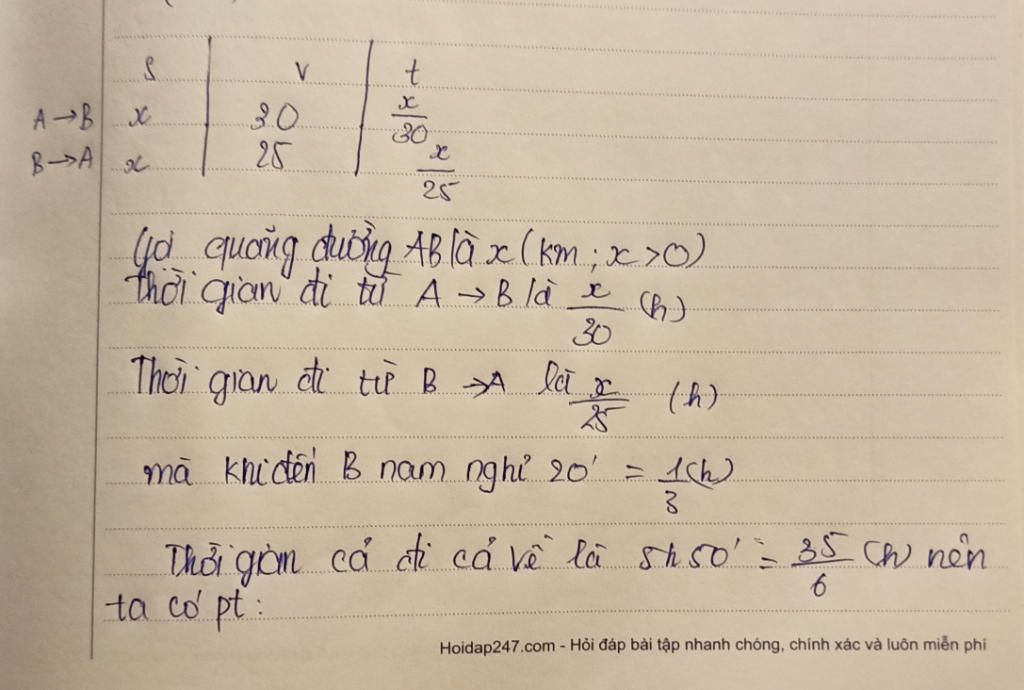 S | v | t
A → B x | 30 | x/30
B → A x | 25 | x/25
Gọi quãng đường AB là x (km ; x > 0)
Thời gian đi từ A → B là x/30 (h)
Thời gian đi từ B → A là x/25 (h)
mà khi đến B nam nghỉ 20' = 1/3 (h)
Thời gian cả đi cả về là 5h50' = 35/6 (h) nên
ta có pt :
Hoidap247.com - Hỏi đáp bài tập nhanh chóng, chính xác và luôn miễn phí